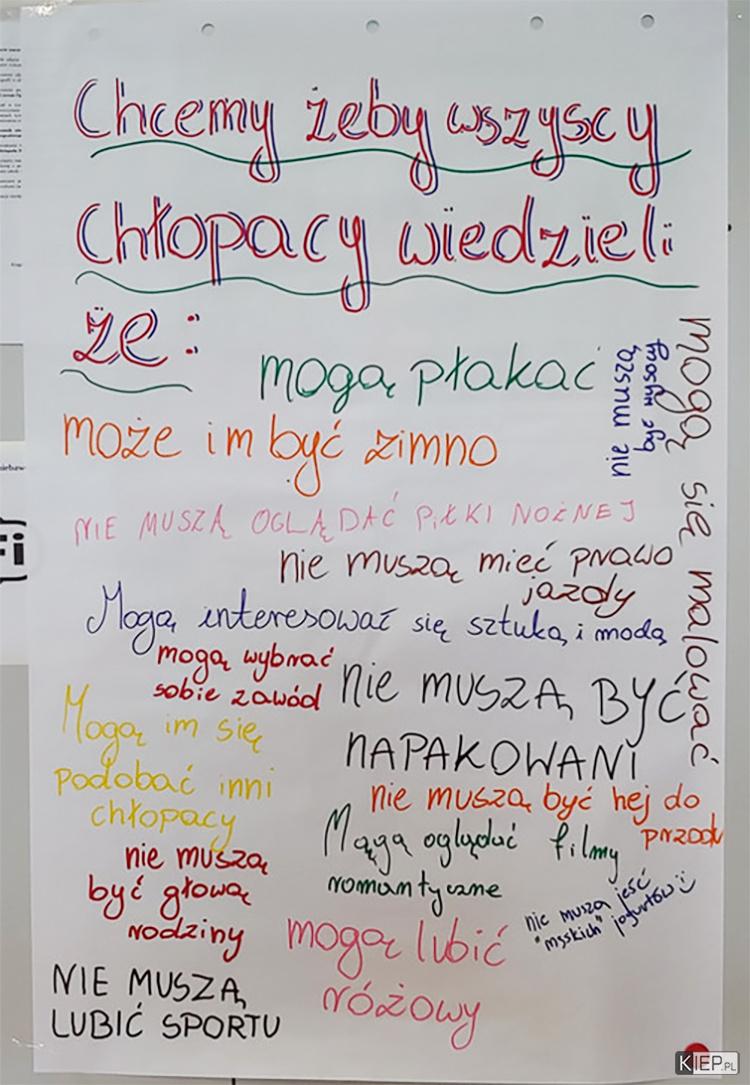 Chcemy żeby wszyscy
Chłopacy wiedzieli
że:
mogą płakać
nie muszą
być wysocy
mogą się malować
może im być zimno
NIE MUSZĄ OGLĄDAĆ PIŁKI NOŻNEJ
nie muszą mieć prawo
jazdy
Mogą interesować się sztuką i modą
mogą wybrać
sobie zawód
nie muszą BYĆ
NAPAKOWANI
Mogą im się
podobać inni
chłopacy
nie muszą być hej do
przodu
Mągą oglądać filmy
romantyczne
nie muszą
być głową
rodziny
nie muszą jeść
"męskich" jogurtów :)
mogą lubić
różowy
NIE MUSZĄ
LUBIĆ SPORTU
Fi
KIEP.PL